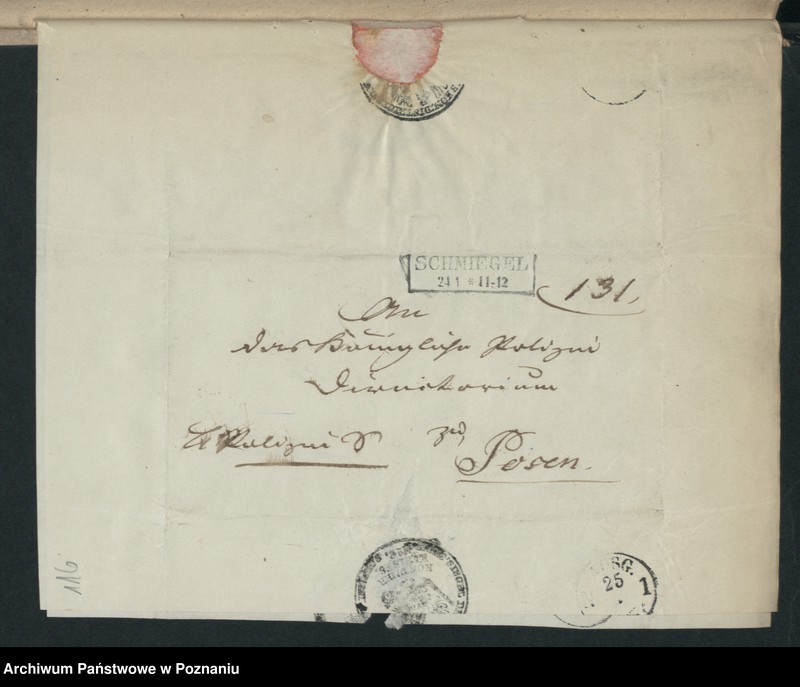 SCHMIEGEL
24 1 * 11-12
131.
An
das Königliche Polizei
Directorium
Polizei S zu
Posen.
AUSG.
25
1
116
Archiwum Państwowe w Poznaniu